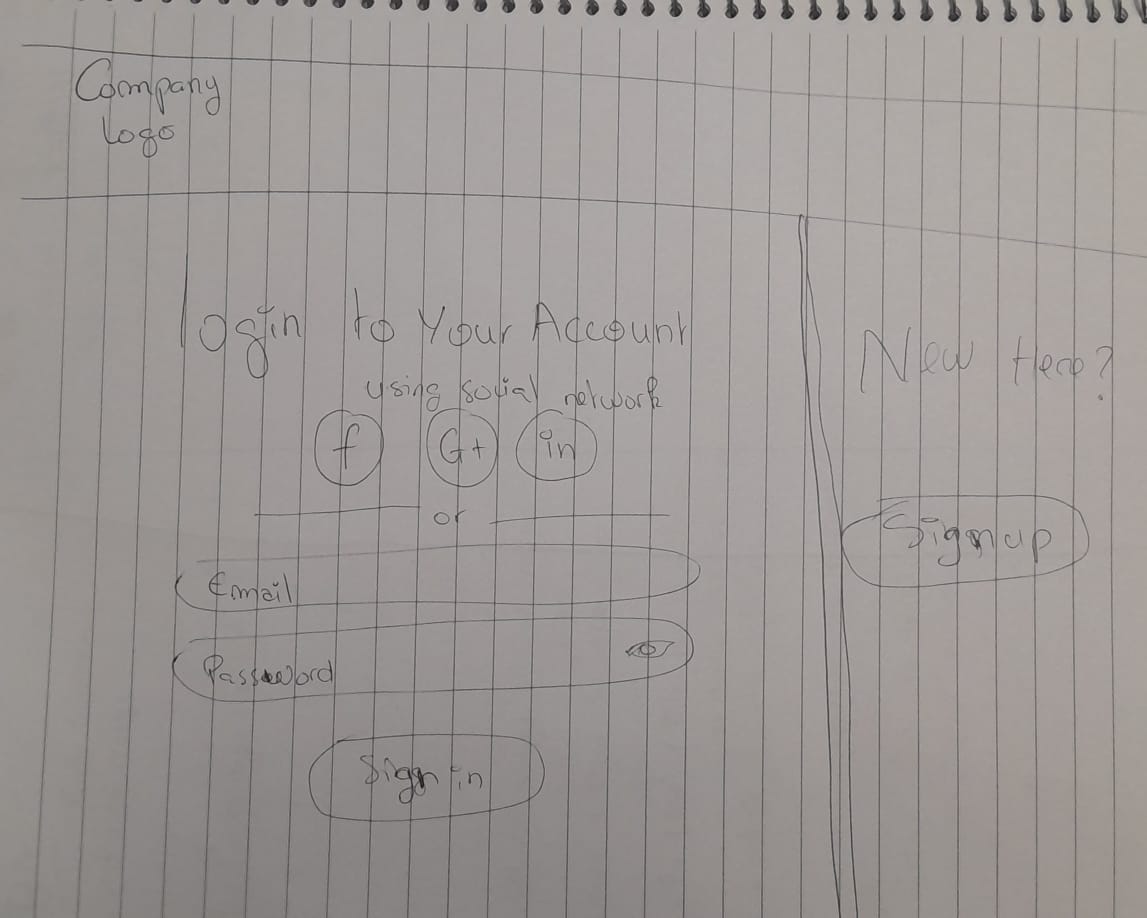 Company
logo
login to Your Account
using social network
f G+ in
or
Email
Password
Sign in
New Here?
Sign up